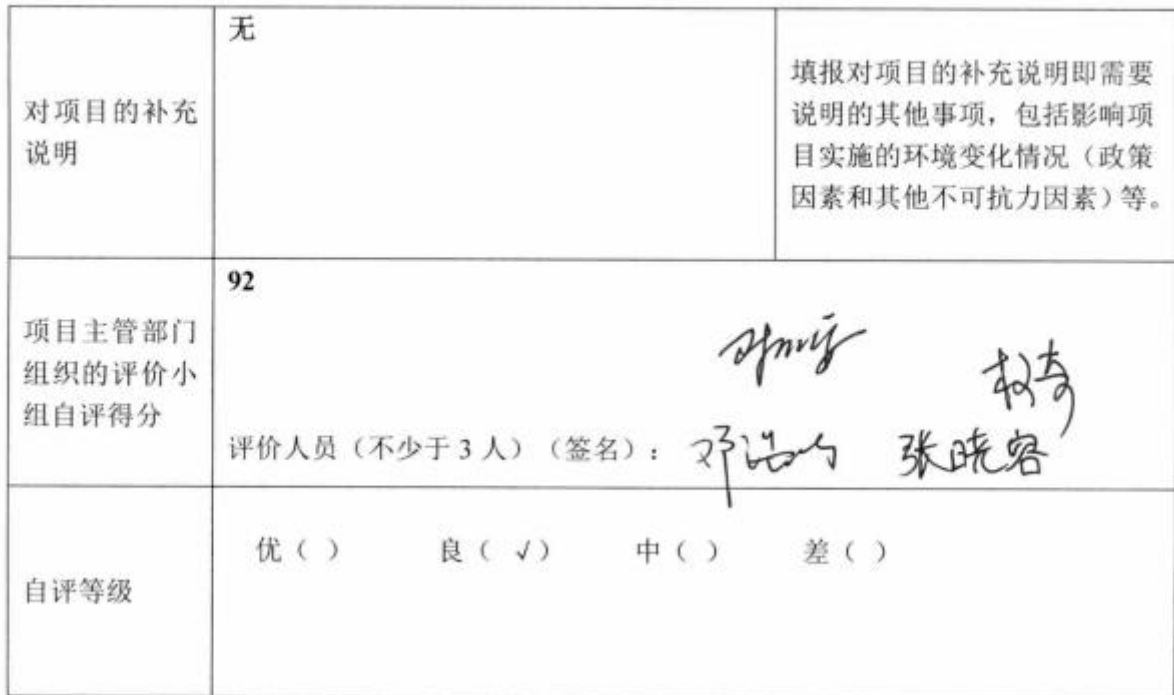 对项目的补充
说明
无
填报对项目的补充说明即需要
说明的其他事项，包括影响项
目实施的环境变化情况（政策
因素和其他不可抗力因素）等。
项目主管部门
组织的评价小
组自评得分
92
评价人员（不少于 3 人）（签名）： 张晓容
自评等级
优（ ） 良（ √） 中（ ） 差（ ）